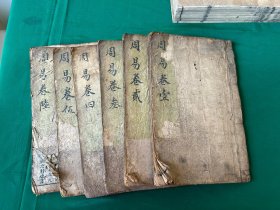 周易卷壹
周易卷貳
周易卷叁
周易卷四
周易卷伍
周易卷陸